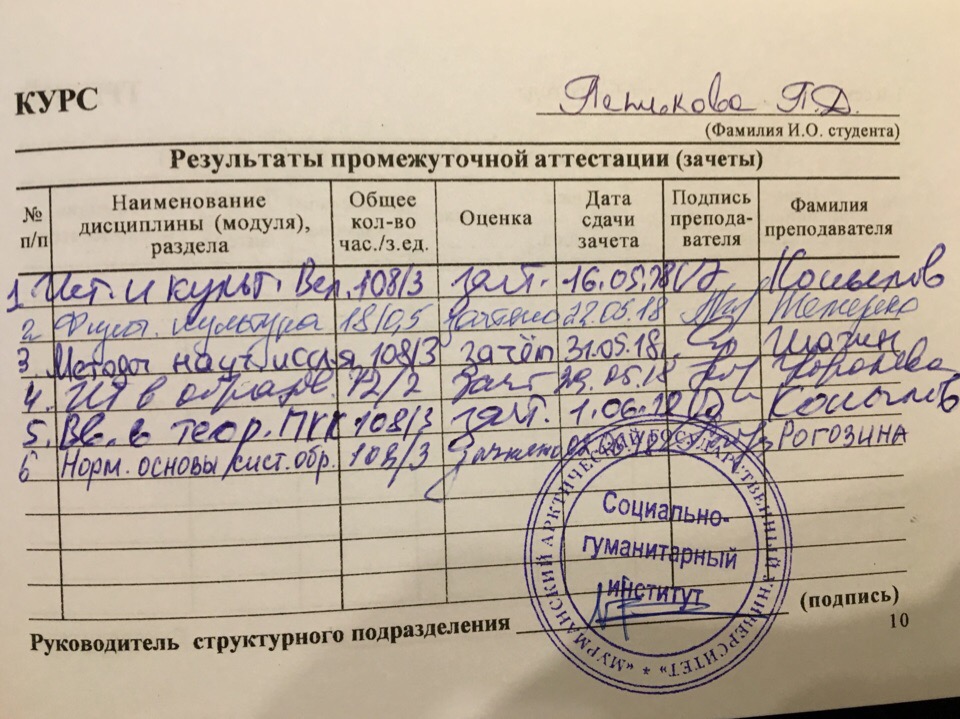 КУРС
П.Д.
(Фамилия И.О. студента)
Результаты промежуточной аттестации (зачеты)
№ п/п Наименование дисциплины (модуля), раздела Общее кол-во час./з.ед. Оценка Дата сдачи зачета Подпись препода-вателя Фамилия преподавателя
1. Ист. и культ. Вел. 108/3 зачт. 16.05.18 Копылов
2 культура 18/0,5 зачтено 22.05.18
3 Методы науч. иссл. 108/3 зачёт 31.05.18
4. ИТ в образ. 72/2 зачт 29.05.18
5. Вв. в теор. ПКК 108/3 зачт. 1.06.18 Копылов
6 Норм. основы сист. обр. 108/3 зачтено РОГОЗИНА
«МУРМАНСКИЙ АРКТИЧЕСКИЙ ГОСУДАРСТВЕННЫЙ УНИВЕРСИТЕТ»
Социально-
гуманитарный
институт
Руководитель структурного подразделения (подпись)
10